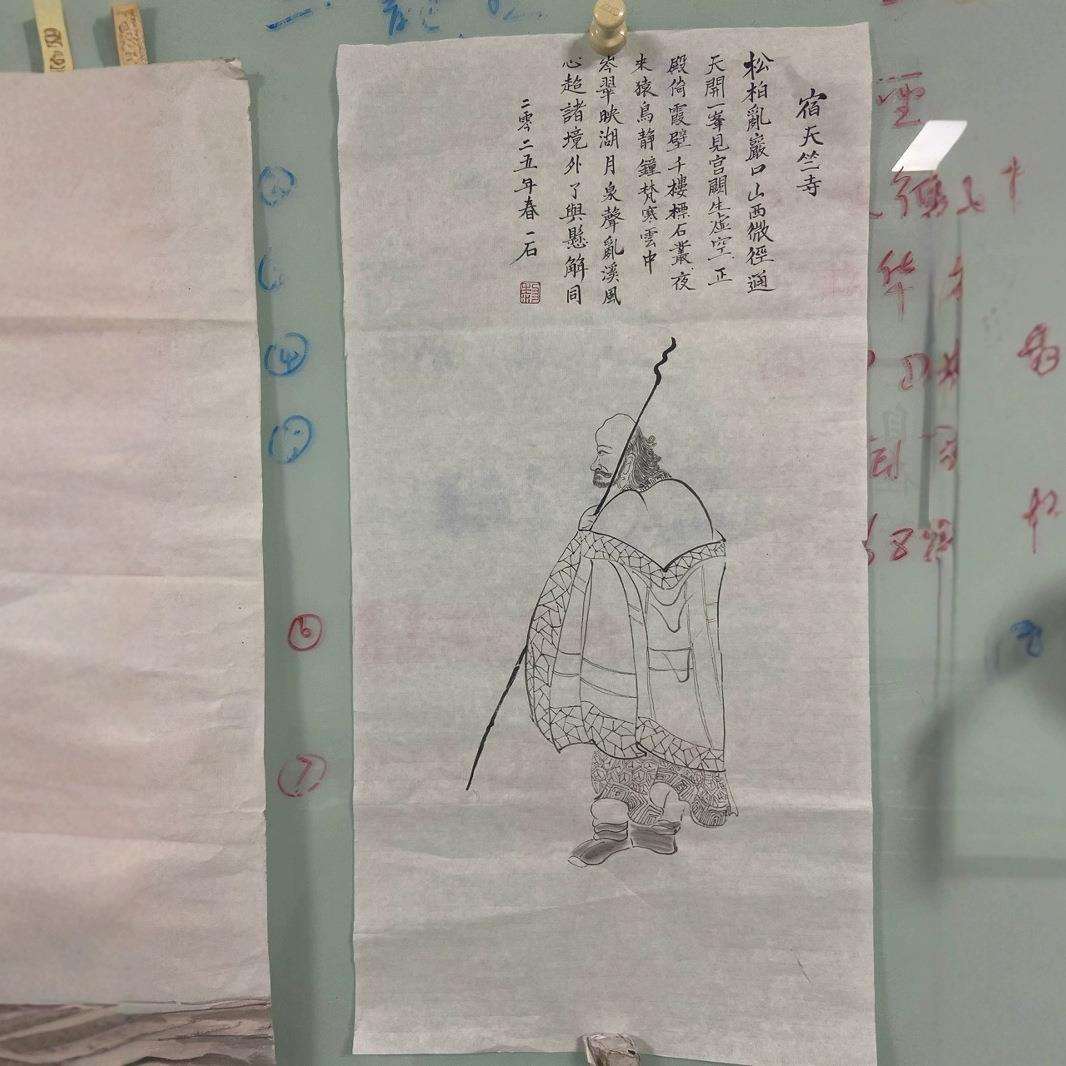 宿天竺寺
松柏亂巖口山西微徑通
天開一峯見宮闕生虛空正
殿倚霞壁千樓標石叢夜
來猿鳥靜鐘梵寒雲中
岑翠映湖月泉聲亂溪風
心超諸境外了與懸解同
二零二五年春一石
④
⑥
⑦